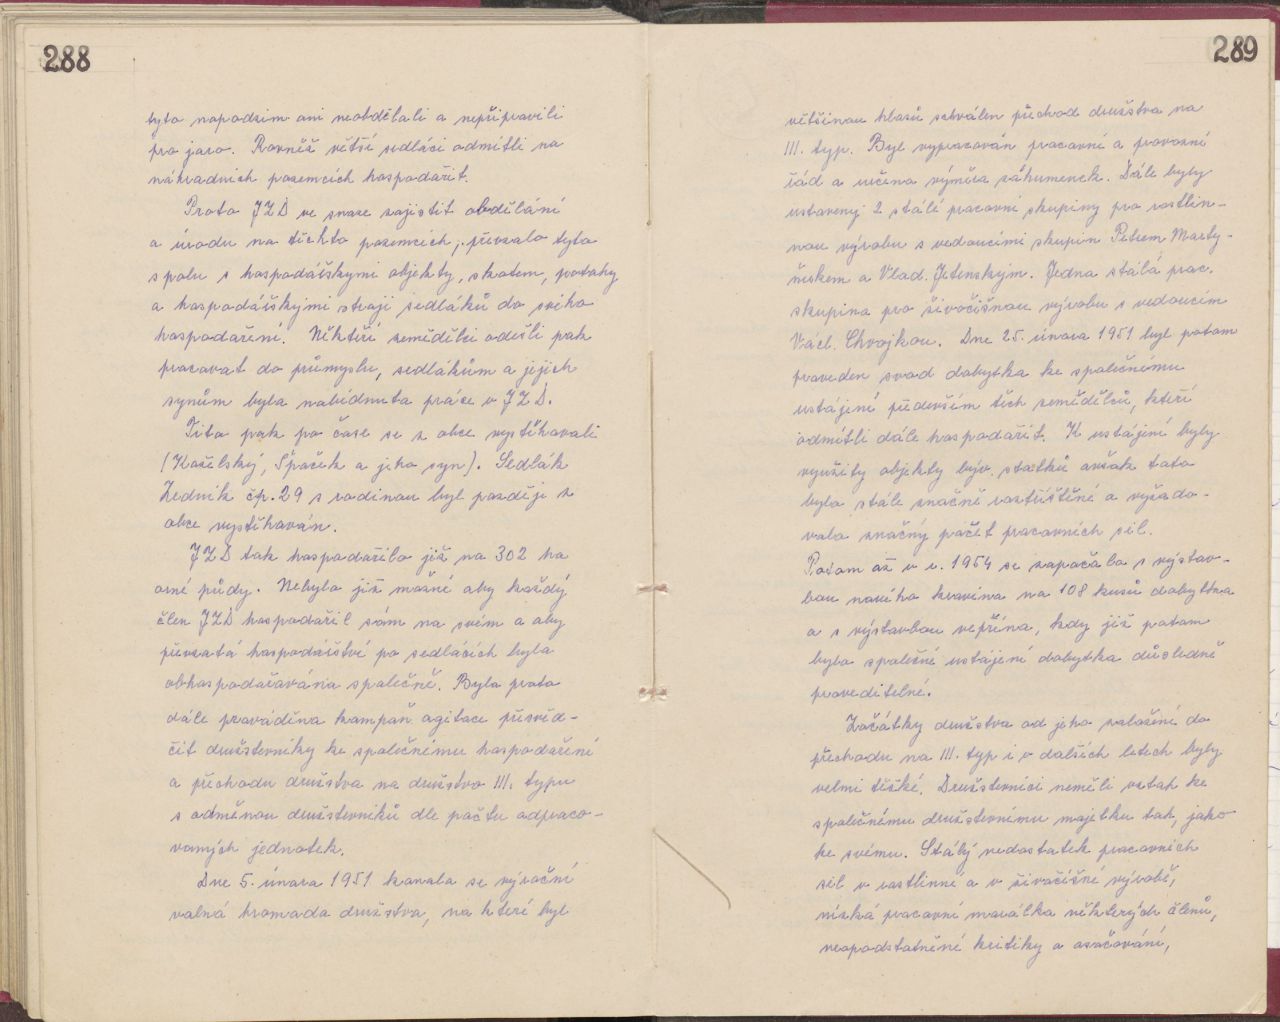 288
tyto napodzim ani neobdělali a nepřipravili
pro jaro. Rovněž větší sedláci odmítli na
náhradních pozemcích hospodařit.
Proto JZD ve snaze zajistit obdělání
a úrodu na těchto pozemcích, převzalo tyto
spolu s hospodářskými objekty, skotem, potahy
a hospodářskými stroji sedláků do svého
hospodaření. Někteří zemědělci odešli pak
pracovat do průmyslu, sedlákům a jejich
synům byla nabídnuta práce v JZD.
Tito pak po čase se z obce vystěhovali
(Kozelský, Špaček a jeho syn). Sedlák
Zedník čp. 29 s rodinou byl později z
obce vystěhován.
JZD tak hospodařilo již na 302 ha
orné půdy. Nebylo již možné aby každý
člen JZD hospodařil sám na svém a aby
převzatá hospodářství po sedlácích byla
obhospodařována společně. Byla proto
dále prováděna kampaň agitace přesvěd-
čit družstevníky ke společnému hospodaření
a přechodu družstva na družstvo III. typu
s odměnou družstevníků dle počtu odpraco-
vaných jednotek.
Dne 5. února 1951 konala se výroční
valná hromada družstva, na které byl
289
většinou hlasů schválen přechod družstva na
III. typ. Byl vypracován pracovní a provozní
řád a určena výměra záhumenek. Dále byly
ustaveny 2 stálé pracovní skupiny pro rostlin-
nou výrobu s vedoucími skupin Petrem Marty-
ňskem a Vlad. Jetenským. Jedna stálá prac.
skupina pro živočišnou výrobu s vedoucím
Václ. Chvojkou. Dne 25. února 1951 byl potom
proveden svod dobytka ke společnému
ustájení především těch zemědělců, kteří
odmítli dále hospodařit. K ustájení byly
využity objekty býv. statků avšak toto
bylo stále značně roztříštěné a vyžado-
valo značný počet pracovních sil.
Potom až v r. 1954 se započalo s výstav-
bou nového kravína na 108 kusů dobytka
a s výstavbou vepřína, kdy již potom
bylo společné ustájení dobytka důsledně
proveditelné.
Začátky družstva od jeho založení do
přechodu na III. typ i v dalších letech byly
velmi těžké. Družstevníci neměli vztah ke
společnému družstevnímu majetku tak, jako
ke svému. Stálý nedostatek pracovních
sil v rostlinné a v živočišné výrobě,
nízká pracovní morálka některých členů,
neopodstatněné kritiky a osočování,